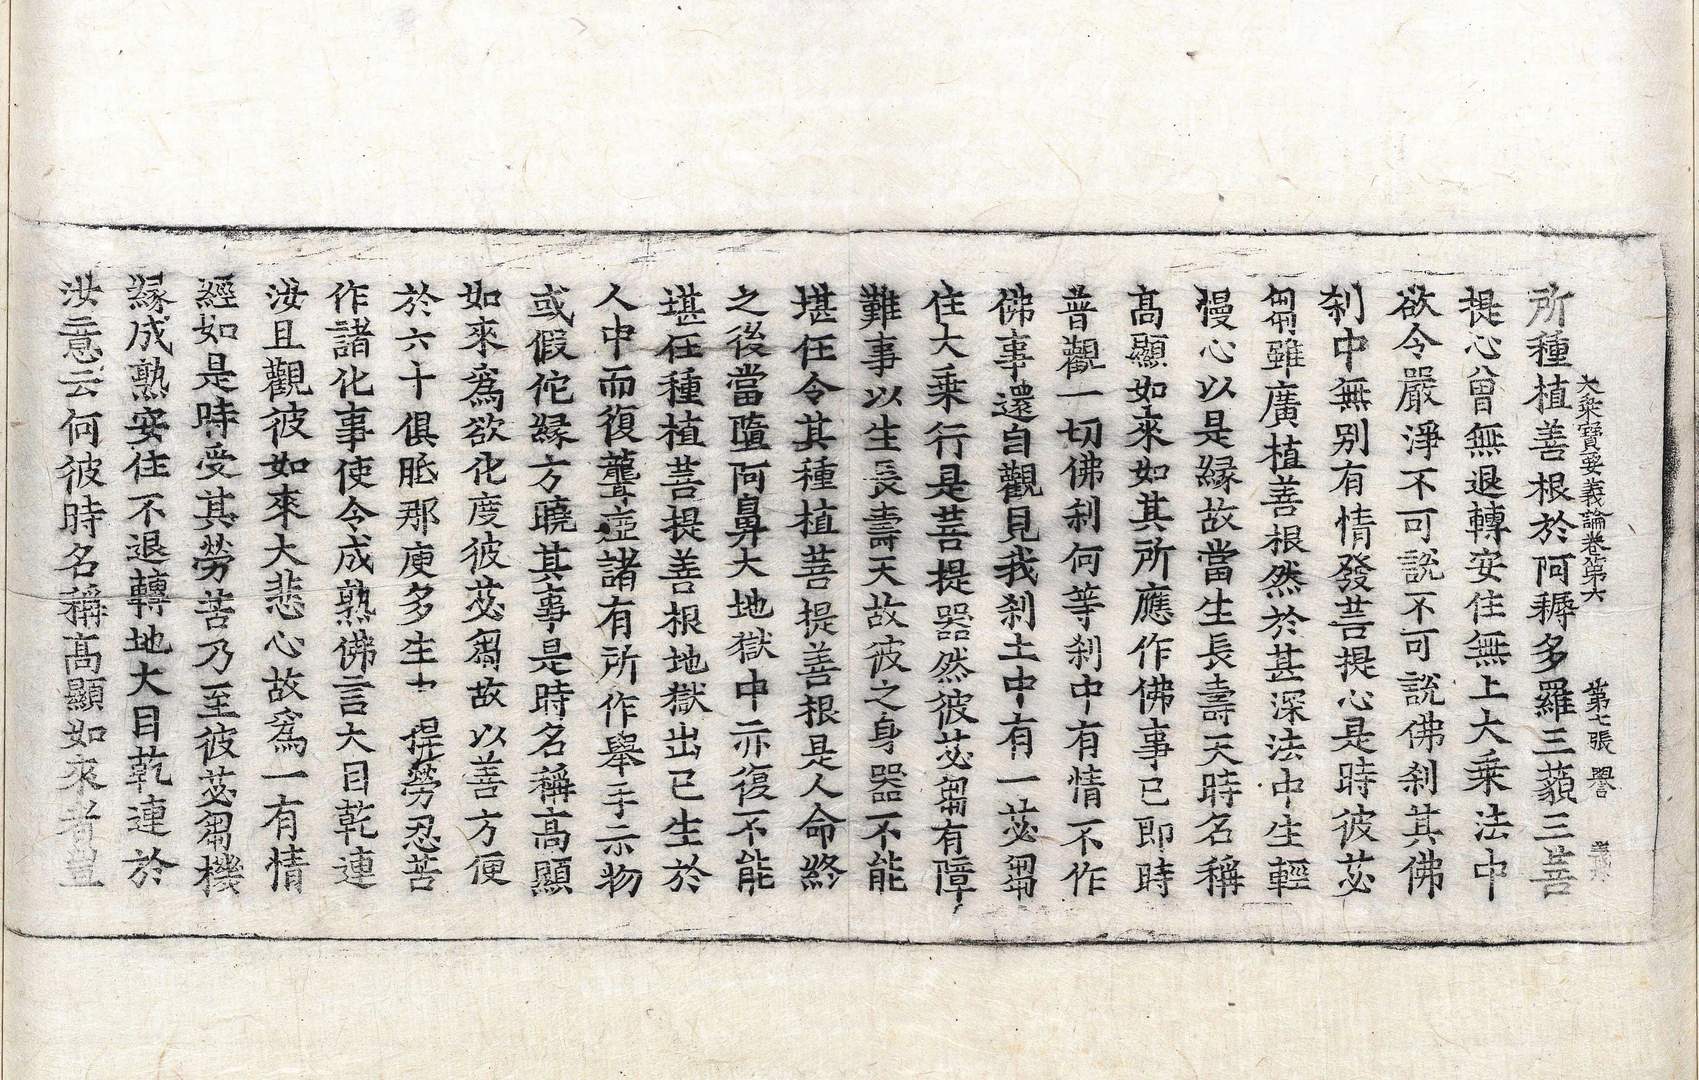 大乘寶要義論卷第六 第七張 譽
所種植善根於阿耨多羅三藐三菩
提心曾無退轉安住無上大乘法中
欲令嚴淨不可說不可說佛刹其佛
刹中無别有情發菩提心是時彼苾
芻雖廣植善根然於甚深法中生輕
慢心以是縁故當生長壽天時名稱
高顯如來如其所應作佛事已即時
普觀一切佛刹何等刹中有情不作
佛事還自觀見我刹土中有一苾芻
住大乘行是菩提器然彼苾芻有障
難事以生長壽天故彼之身器不能
堪任令其種植菩提善根是人命終
之後當墮阿鼻大地獄中亦復不能
堪任種植菩提善根地獄出已生於
人中而復聾瘂諸有所作舉手示物
或假佗縁方曉其事是時名稱高顯
如來爲欲化度彼苾芻故以善方便
於六十俱胝那庾多生中 勞忍苦
作諸化事使令成熟佛言大目乾連
汝且觀彼如來大悲心故爲一有情
經如是時受其勞苦乃至彼苾芻機
縁成熟安住不退轉地大目乾連於
汝意云何彼時名稱高顯如來者豈